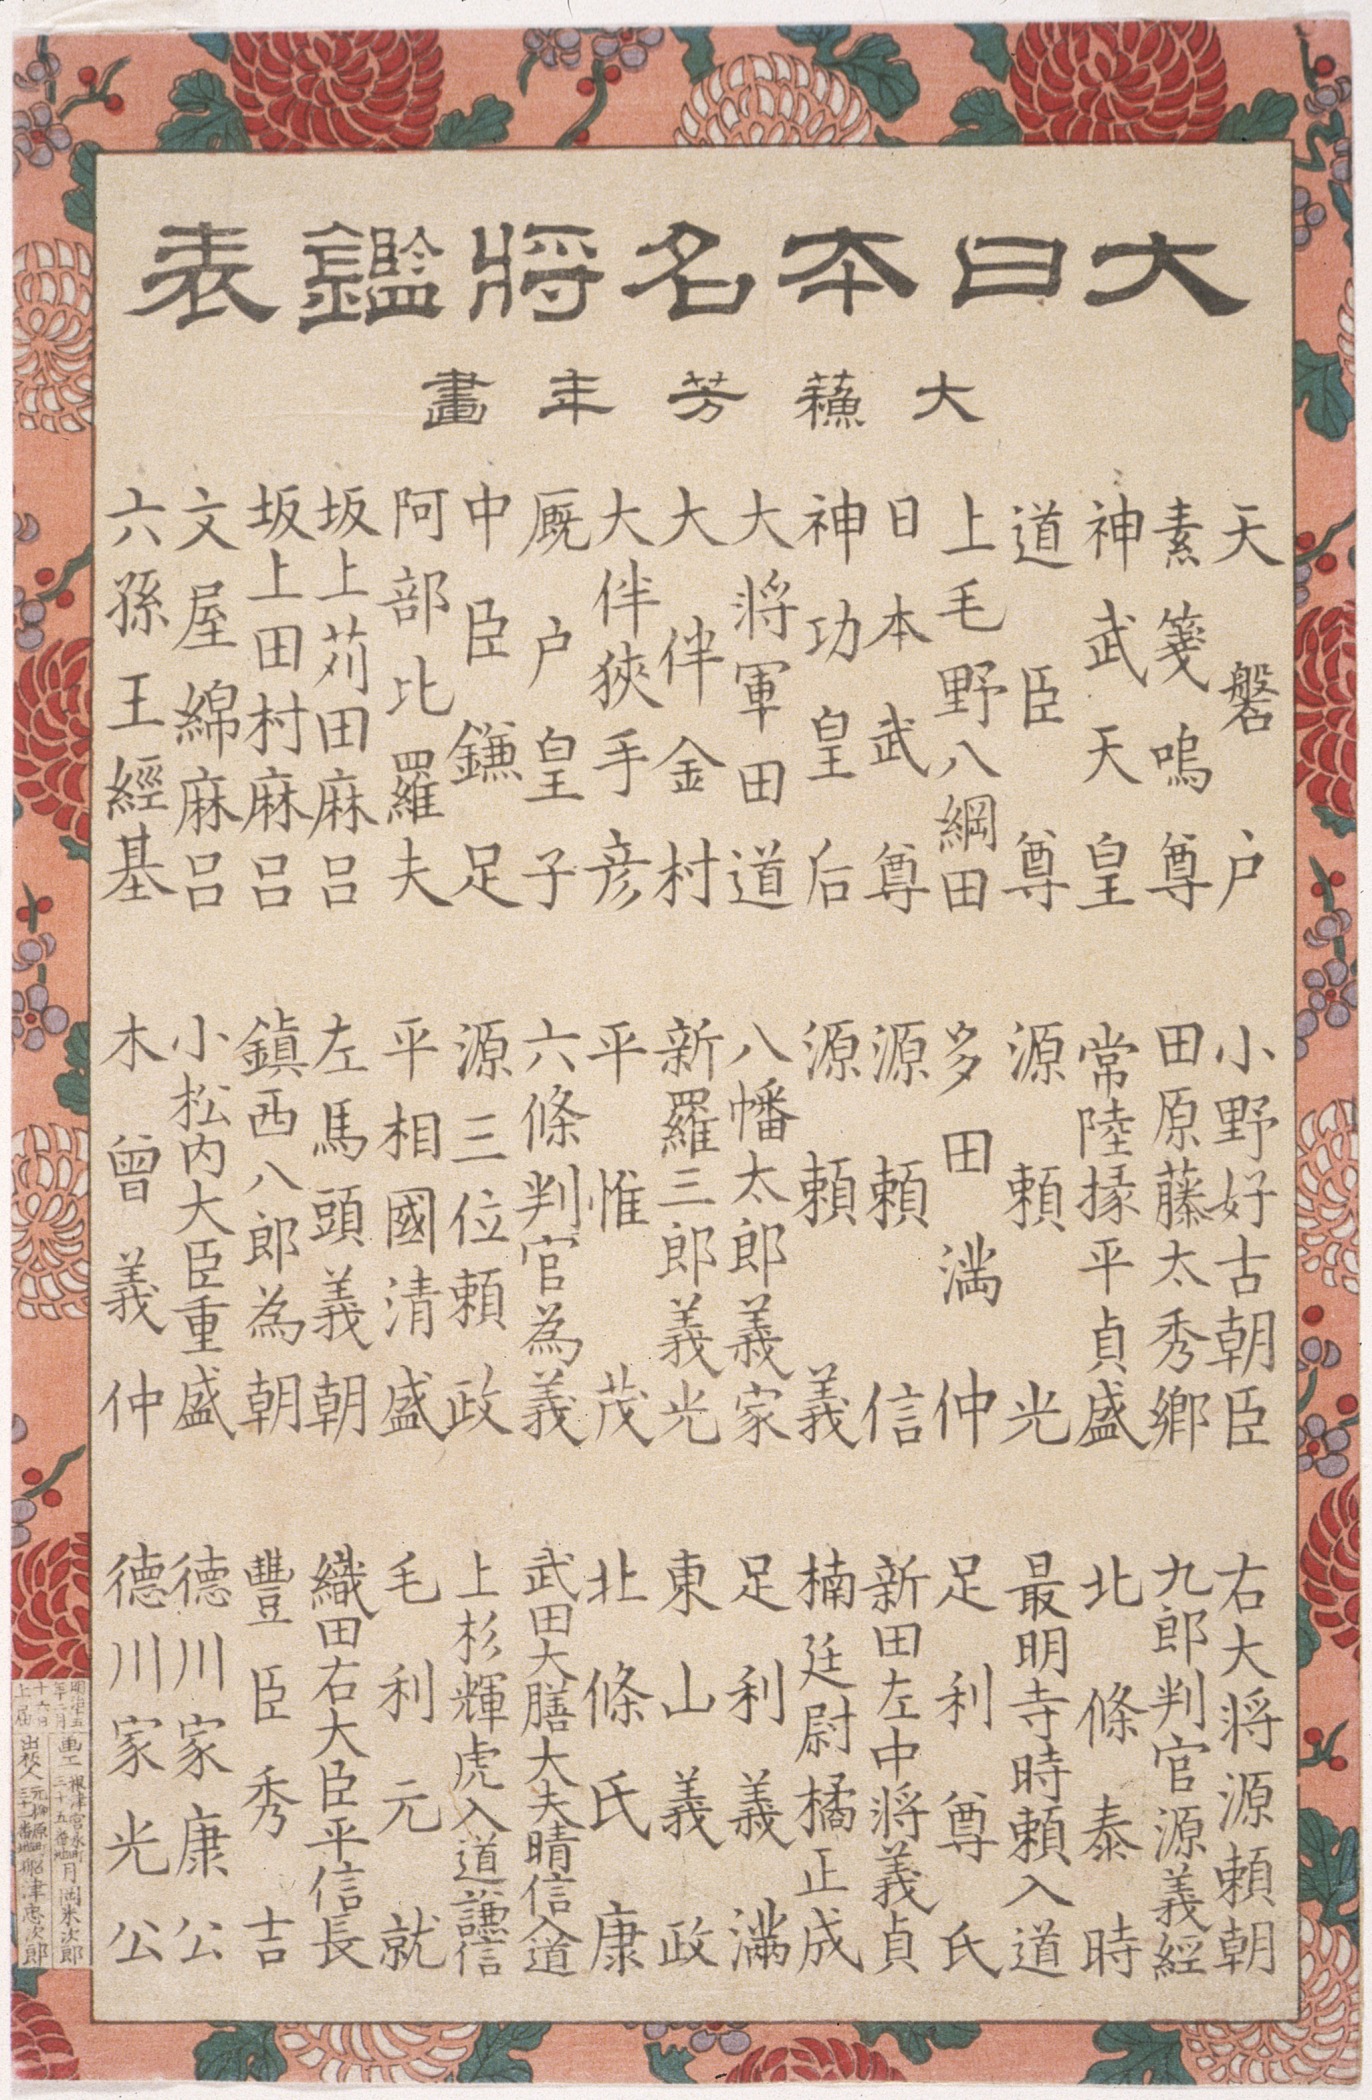 大日本名將鑑表
大蘓芳年畫
天磐戸
素箋嗚尊
神武天皇
道臣尊
上毛野八綱田
日本武尊
神功皇后
大將軍田道
大伴金村
大伴狹手彦
厩戸皇子
中臣鎌足
阿部比羅夫
坂上苅田麻呂
坂上田村麻呂
文屋綿麻呂
六孫王經基
小野好古朝臣
田原藤太秀鄉
常陸掾平貞盛
源頼光
多田満仲
源頼信
源頼義
八幡太郎義家
新羅三郎義光
平惟茂
六條判官為義
源三位頼政
平相國清盛
左馬頭義朝
鎮西八郎為朝
小松内大臣重盛
木曾義仲
右大将源頼朝
九郎判官源義經
北條泰時
最明寺時頼入道
足利尊氏
新田左中將義貞
楠廷尉橘正成
足利義満
東山義政
北條氏康
武田大膳大夫晴信入道
上杉輝虎入道謙信
毛利元就
織田右大臣平信長
豐臣秀吉
德川家康公
德川家光公
画工 根津宮永町三十五番地 月岡米次郎
出板人 船津忠次郎